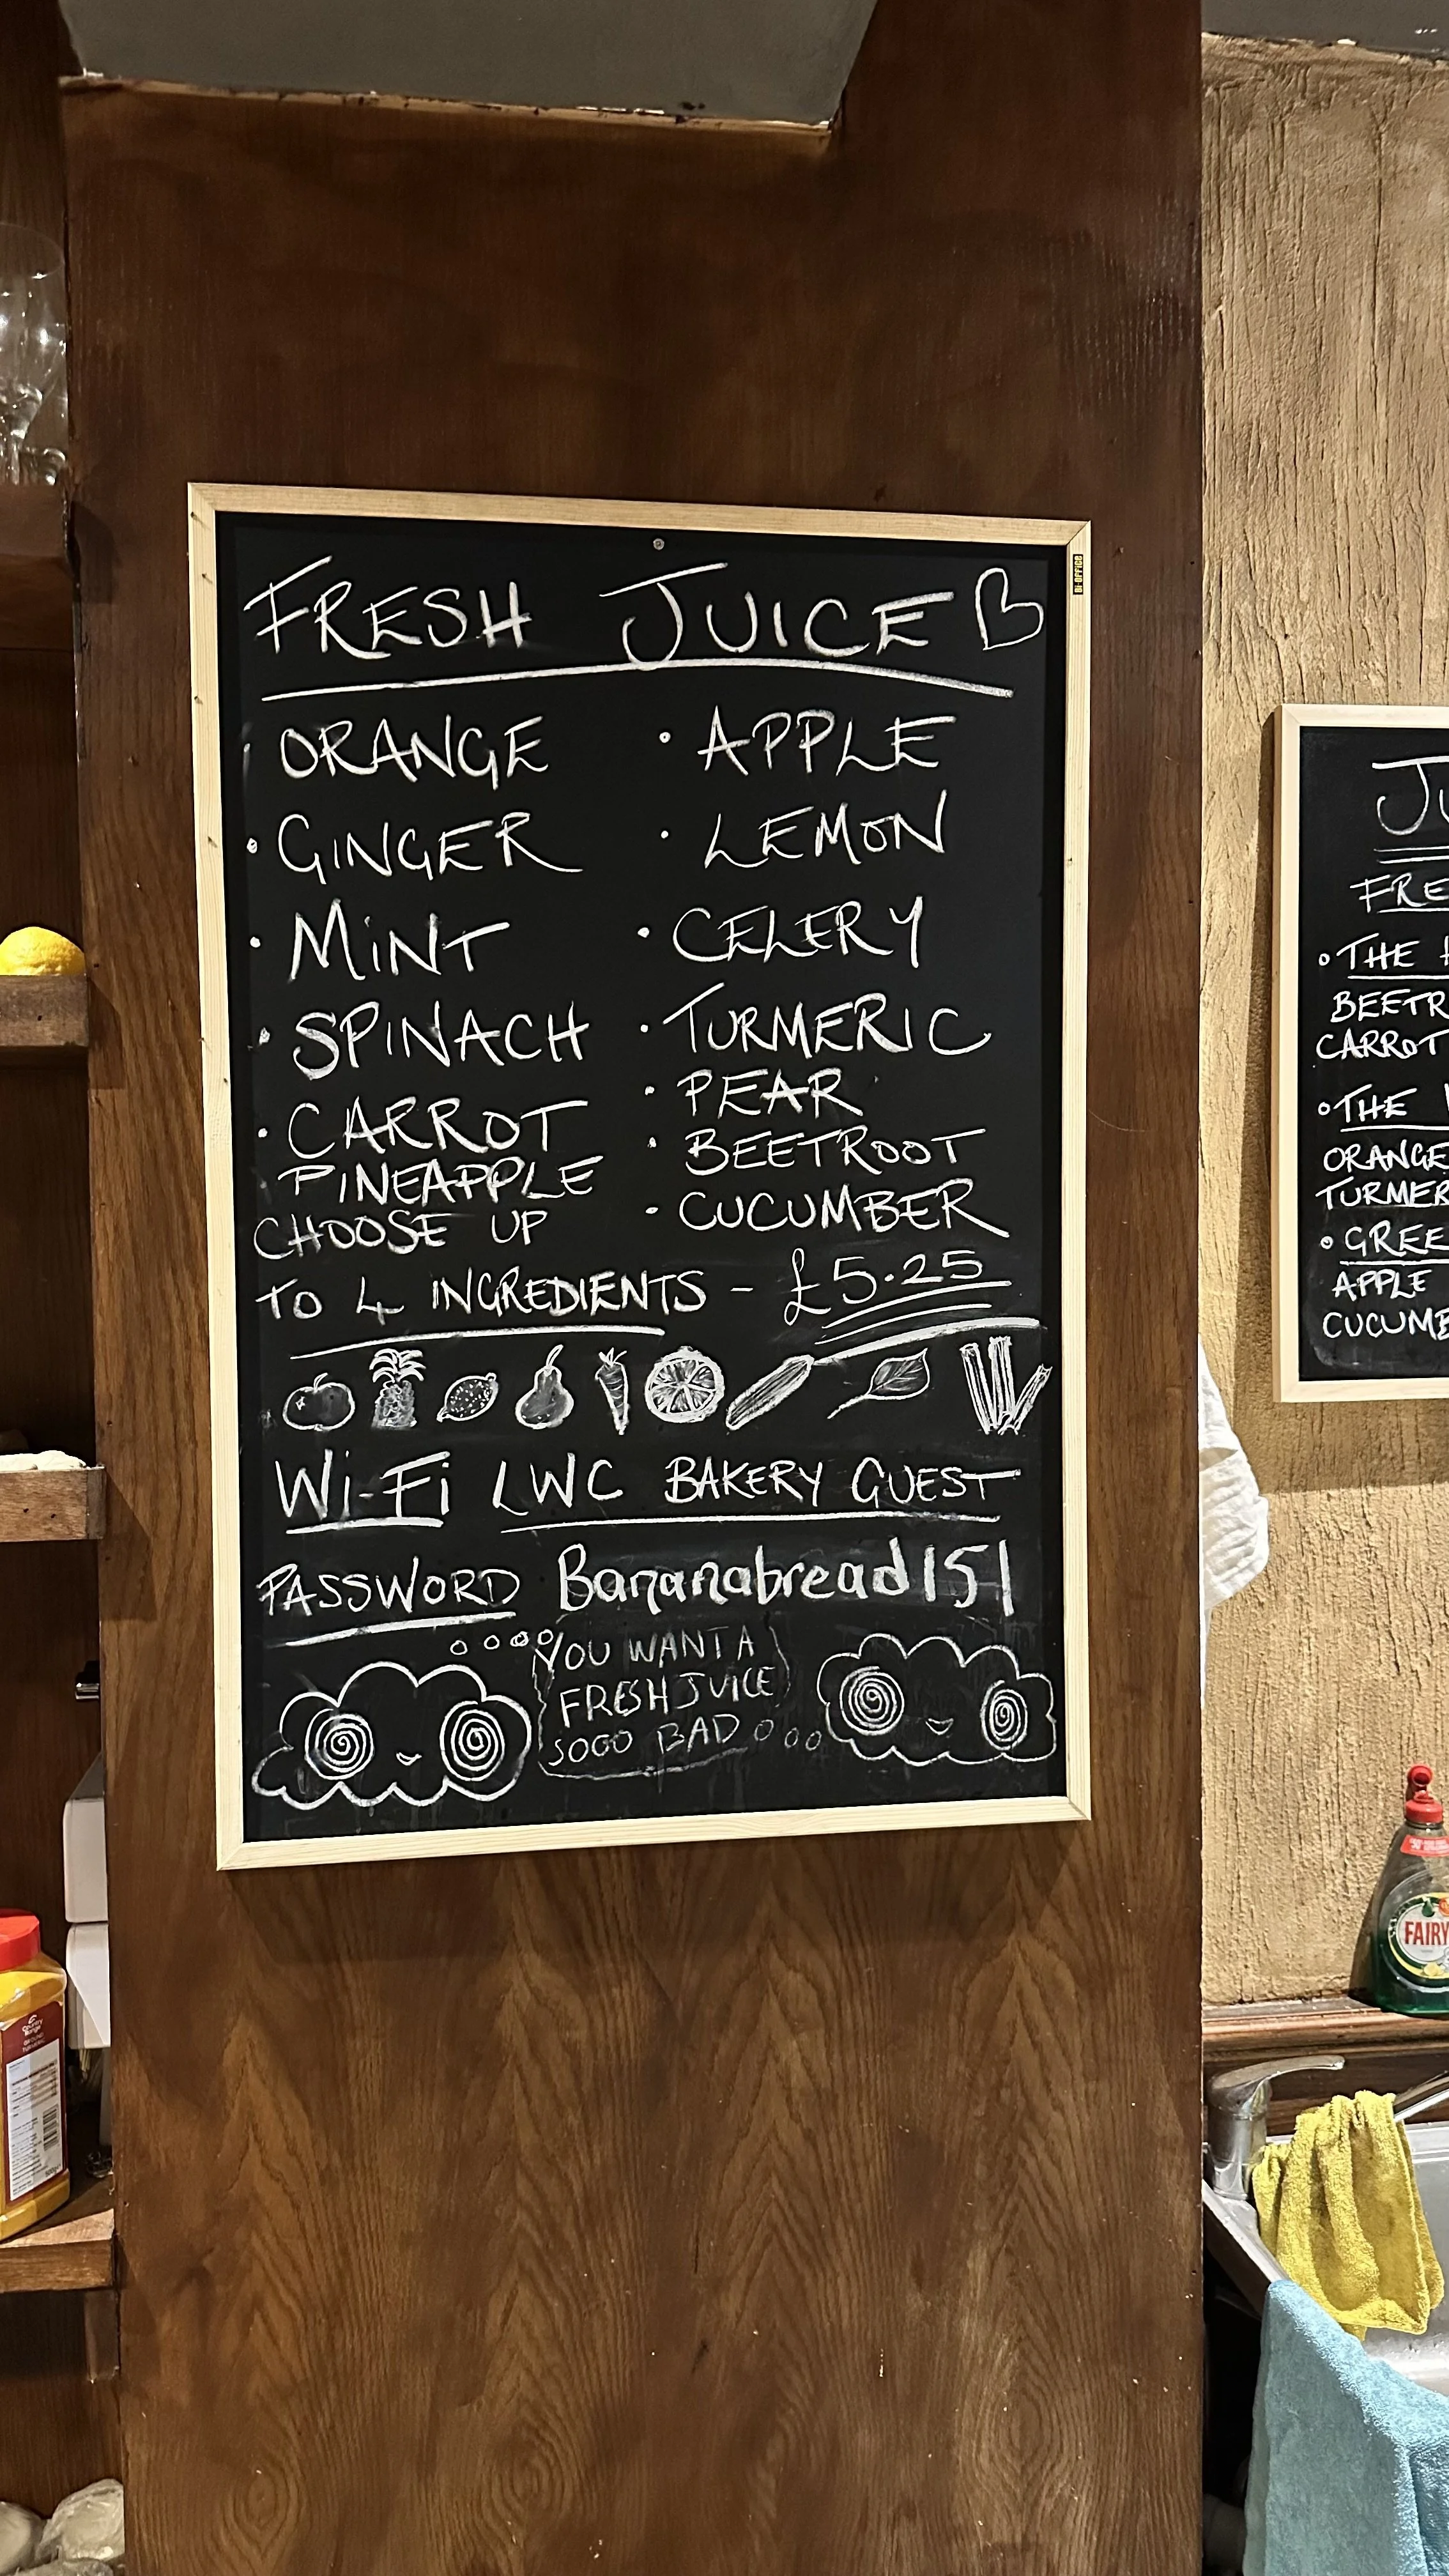 FRESH JUICE
ORANGE
• GINGER
• MiNT
• SPINACH
• CARROT
PINEAPPLE
• APPLE
• LEMON
• CELERY
• TURMERIC
• PEAR
• BEETROOT
• CUCUMBER
CHOOSE UP
TO 4 INGREDIENTS - £5.25
Wi-Fi LWC BAKERY GUEST
PASSWORD Bananabread151
YOU WANT A
FRESH JUICE
SOOO BAD
BI-OFFICE
FRE
• THE
BEETR
CARROT
• THE
ORANGE
TURMER
• GREE
APPLE
CUCUMB
FAIRY